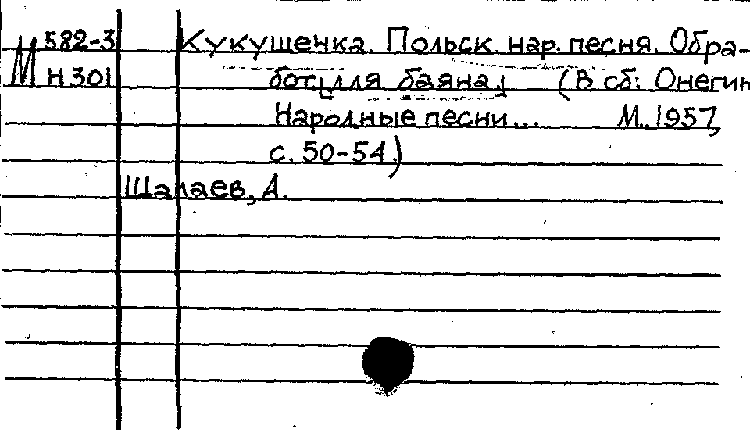 М 582-3 Кукушечка. Польск. нар. песня. Обра-
Н 301 бот[для баяна] (В сб: Онегин
Народные песни... М. 1957,
с. 50-54.)
Шалаев, А.